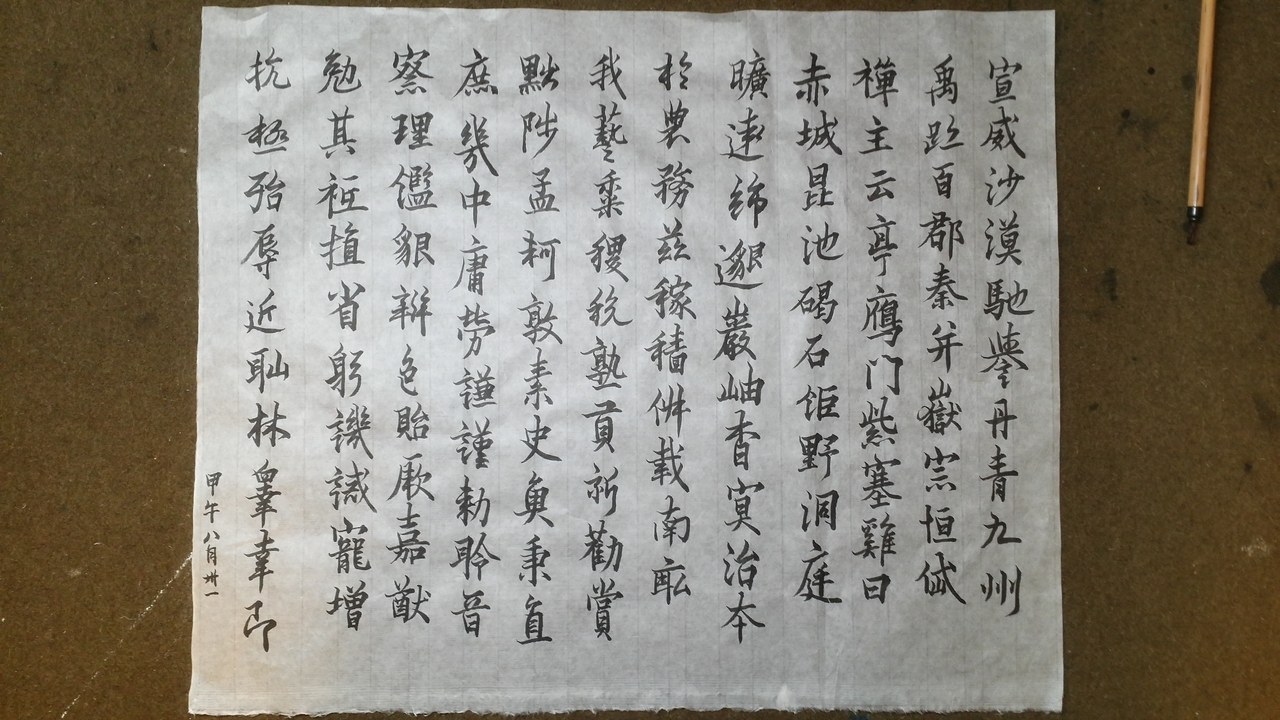 宣威沙漠馳譽丹青九州
禹跡百郡秦并嶽宗恒岱
禪主云亭鴈門紫塞雞田
赤城昆池碣石鉅野洞庭
曠遠綿邈巖岫杳冥治本
於農務茲稼穡俶載南畝
我藝黍稷稅熟貢新勸賞
黜陟孟軻敦素史魚秉直
庶幾中庸勞謙謹勑聆音
察理鑑貌辨色貽厥嘉猷
勉其祗植省躬譏誡寵增
抗極殆辱近恥林皋幸即
甲午八月卅一